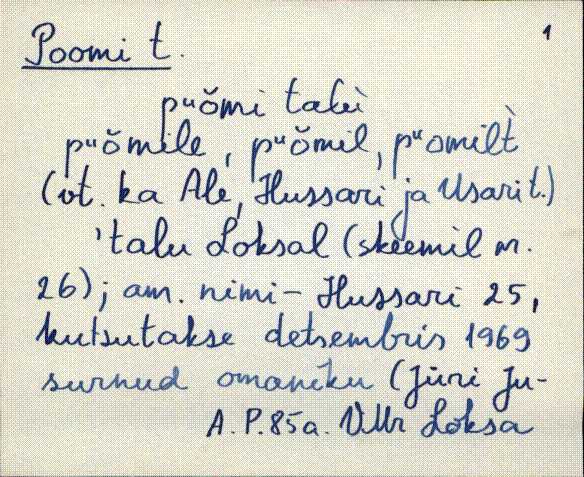 1
Poomi t.
pᵘŏmi talù
pᵘŏmile, pᵘŏmil, pᵘomilt̀
(vt. ka Ale, Hussari ja Usari t.)
'talu Loksal (skeemil nr.
26); am. nimi – Hussari 25,
kutsutakse detsembris 1969
surnud omaniku (Jüri Ju-
A.P. 85a. VMr Loksa